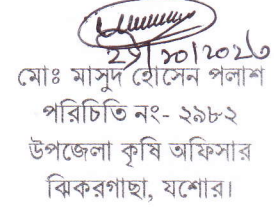 মোঃ মাসুদ হোসেন পলাশ
পরিচিতি নং- ২৯৮২
উপজেলা কৃষি অফিসার
ঝিকরগাছা, যশোর।